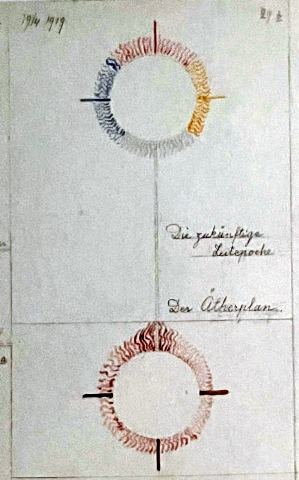 1914 1919
Die zukünftige
Zeitepoche
Der Ätherplan.